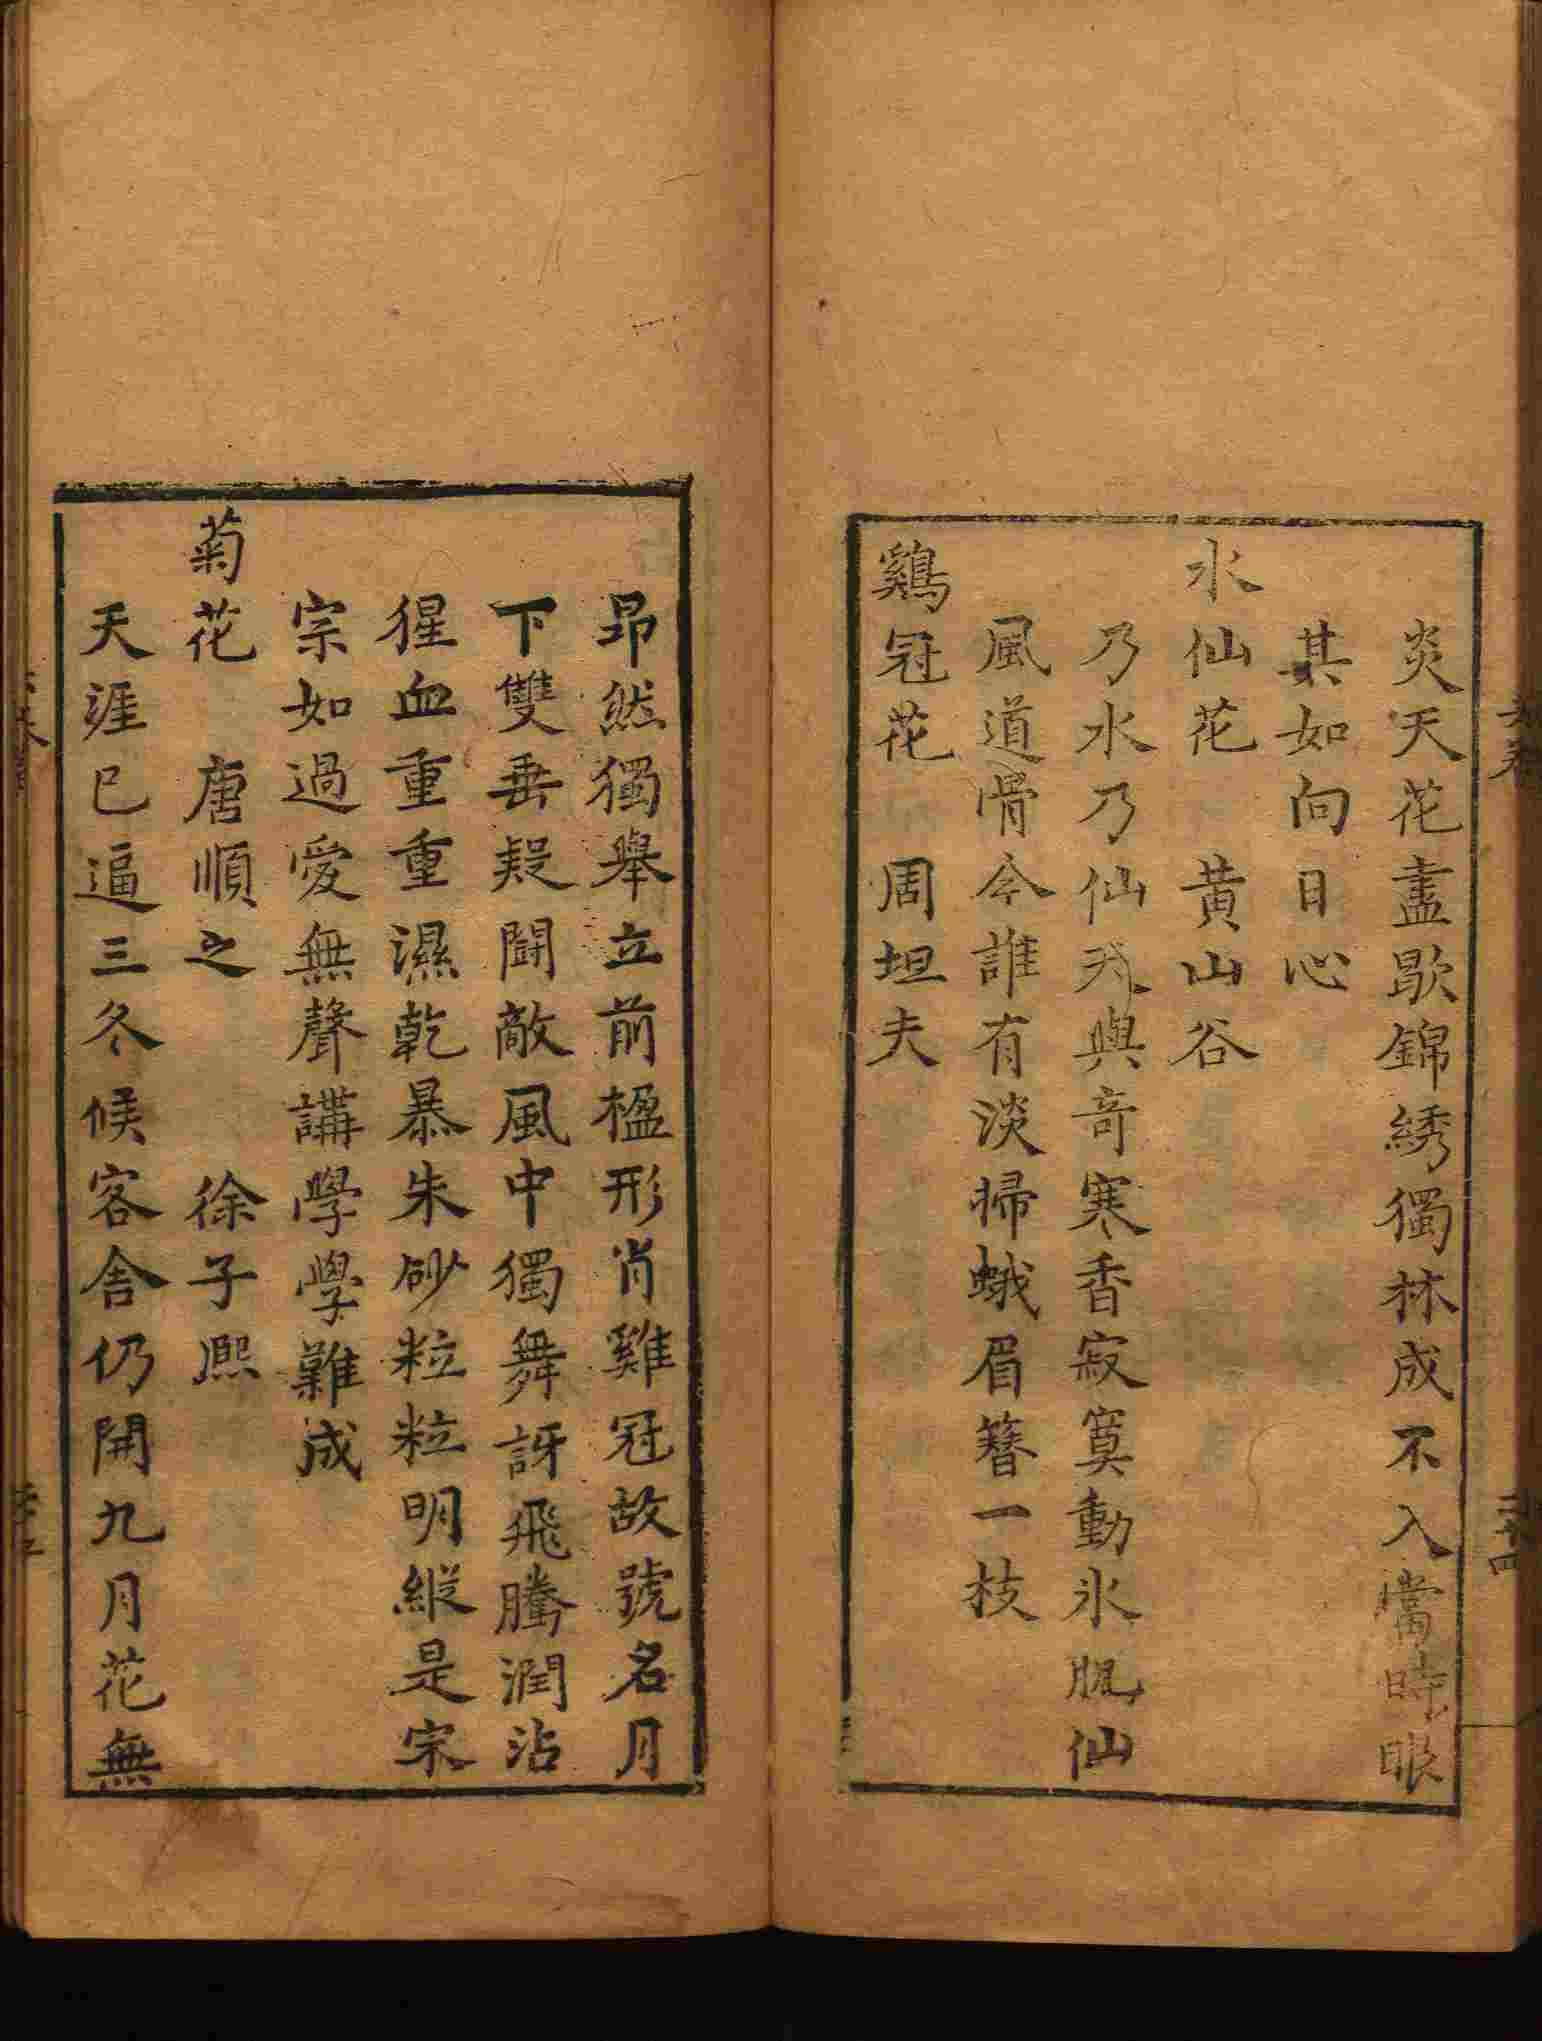 炎天花盡歇錦綉獨林成不入當時眼
其如向日心
水仙花　黃山谷
乃水乃仙天與奇寒香寂寞動氷肌仙
風道骨今誰有淡掃蛾眉簪一枝
鷄冠花　周坦夫
昂然獨舉立前楹形肖雞冠故號名月
下雙垂疑鬪敵風中獨舞訝飛騰潤沾
猩血重重濕乾暴朱砂粒粒明縱是宋
宗如過愛無聲講學學難成
菊花　唐順之　徐子熈
天涯已逼三冬候客舍仍開九月花無